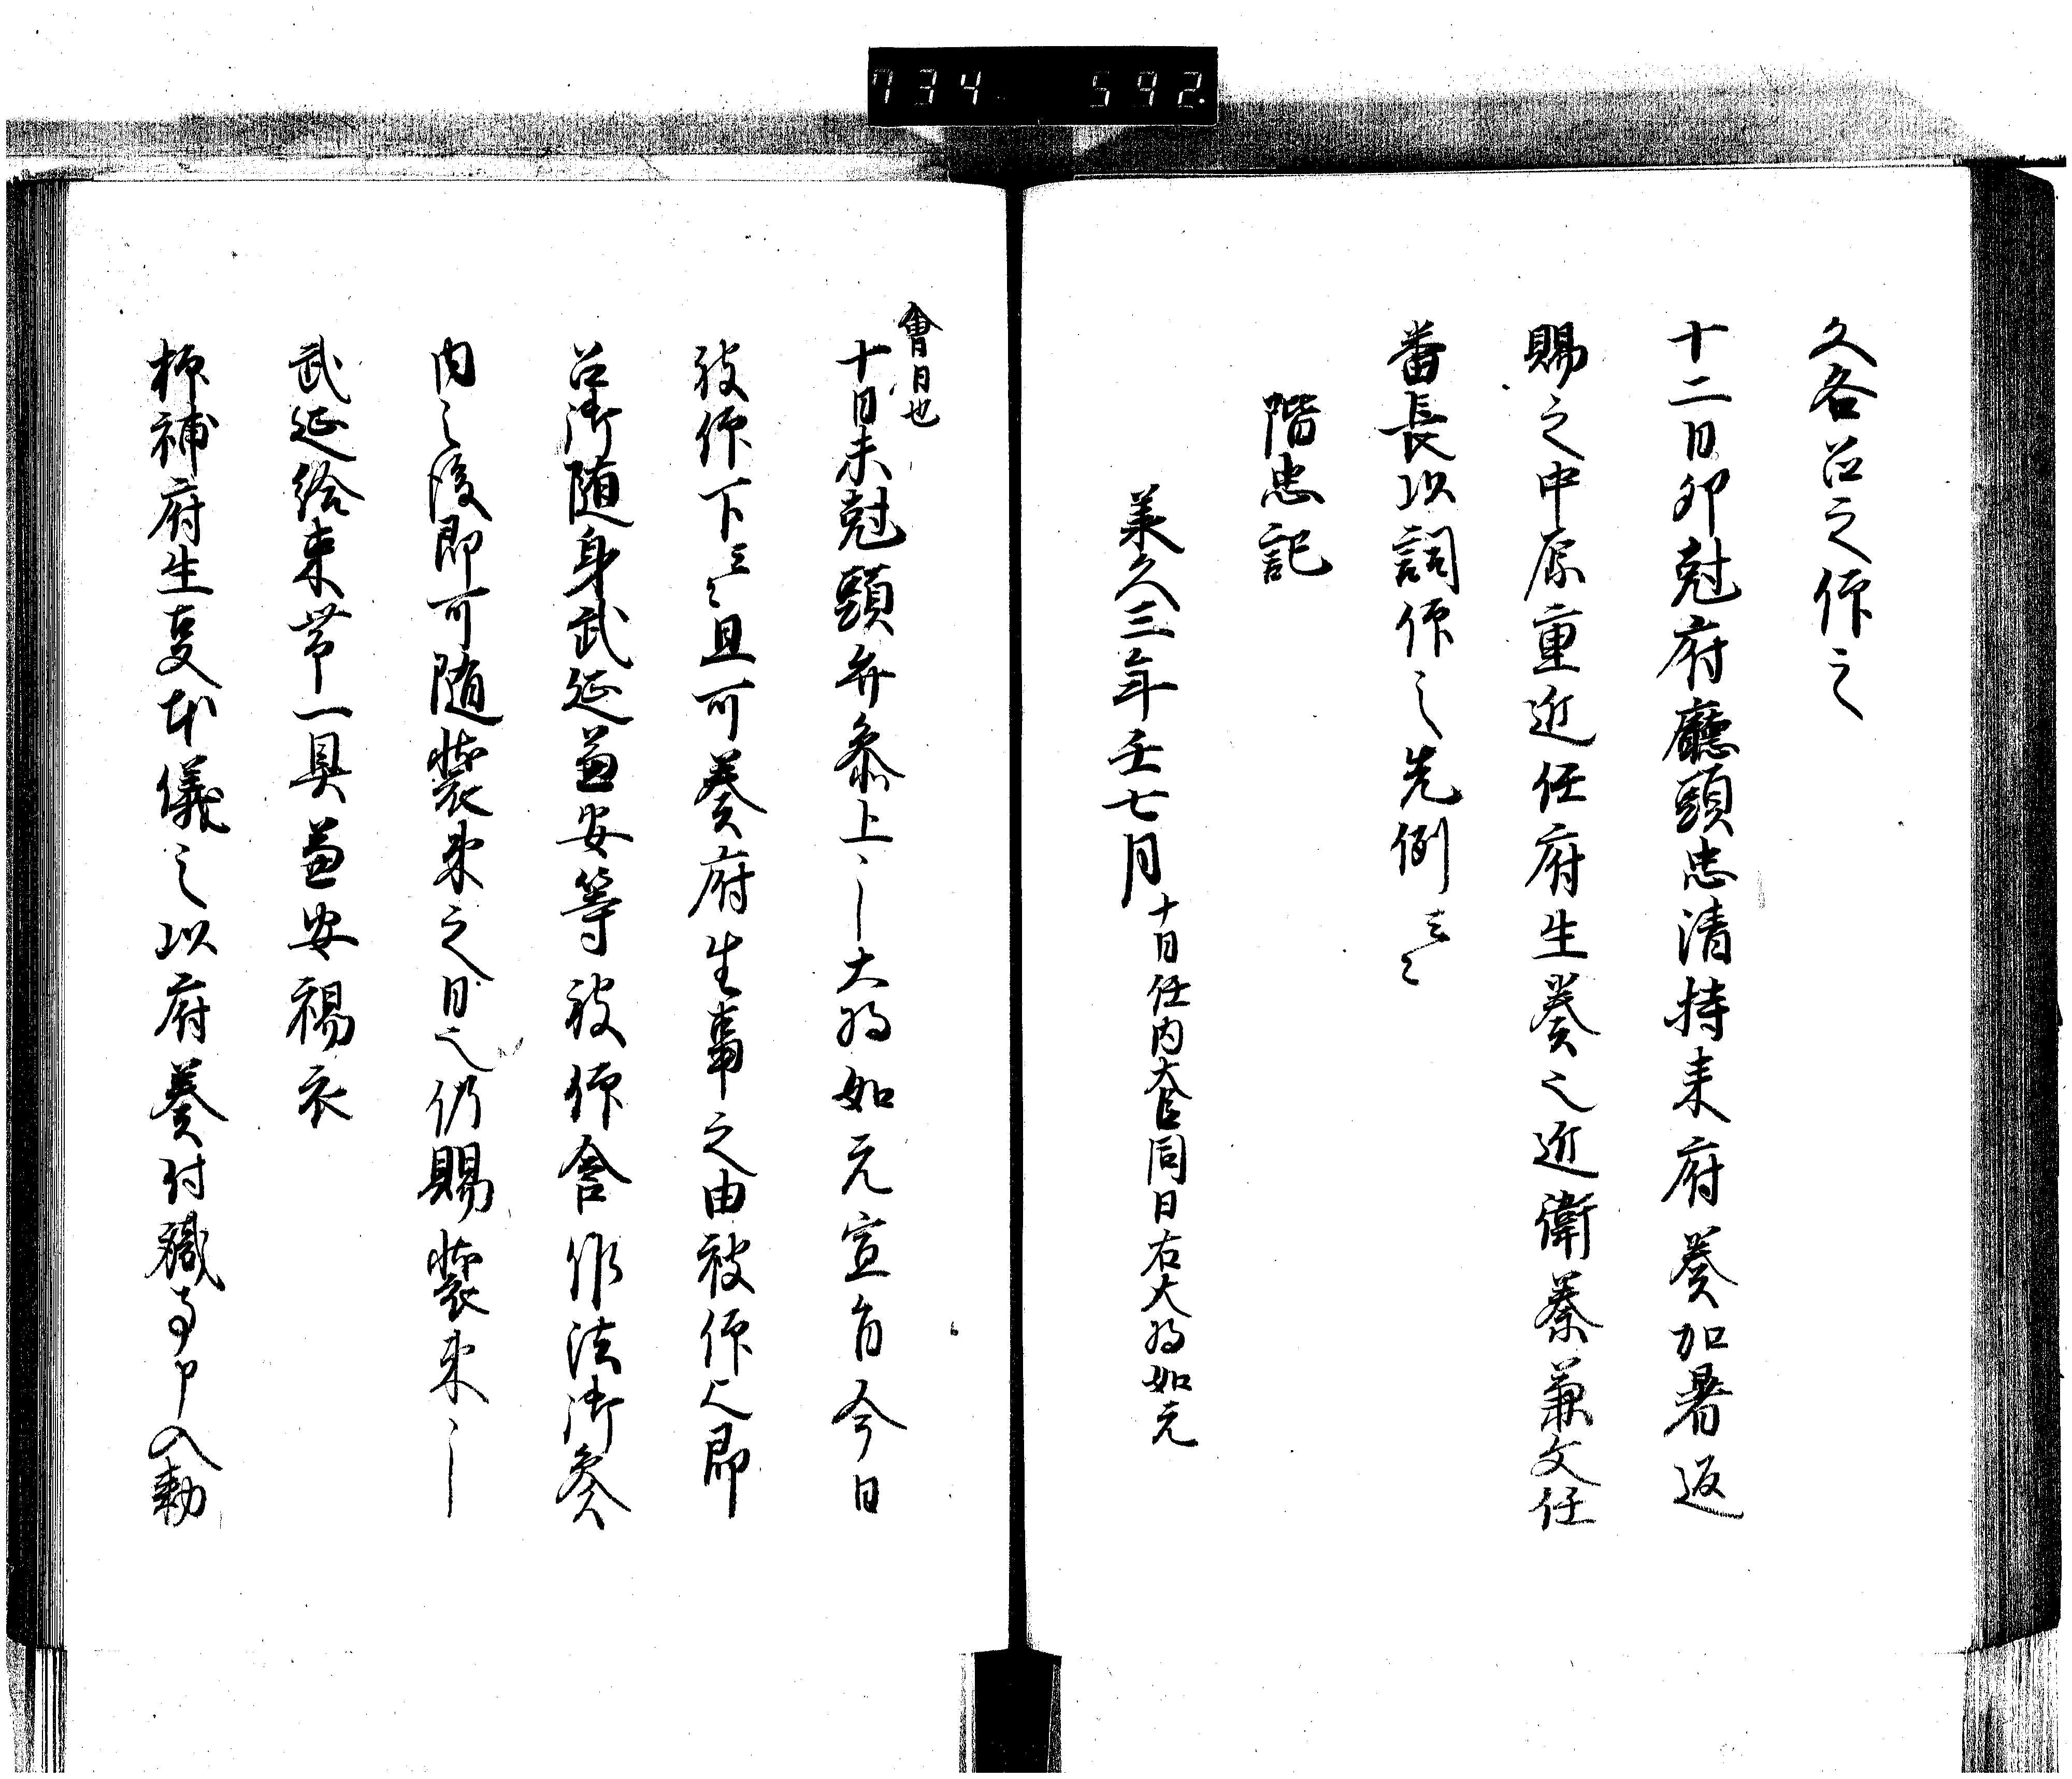 734 592
文各召之仰之
十二日卯剋府廳頭忠清持来府奏加署返
賜之中原重近任府生奏之近衛秦兼文任
番長以詞仰之先例云々
階忠記
承久三年壬七月十日任内大臣同日右大将如元
會日也
十日未剋頭弁参上之大将如元宣旨今日
被仰下云々且可奏府生事之由被仰之即
召御随身武延兼安等被仰含作法御奏
内之後即可随装束之日也仍賜装束之
武延給束帯一具兼安褐衣
抑補府生夏本儀之以府奏付職事申入勅